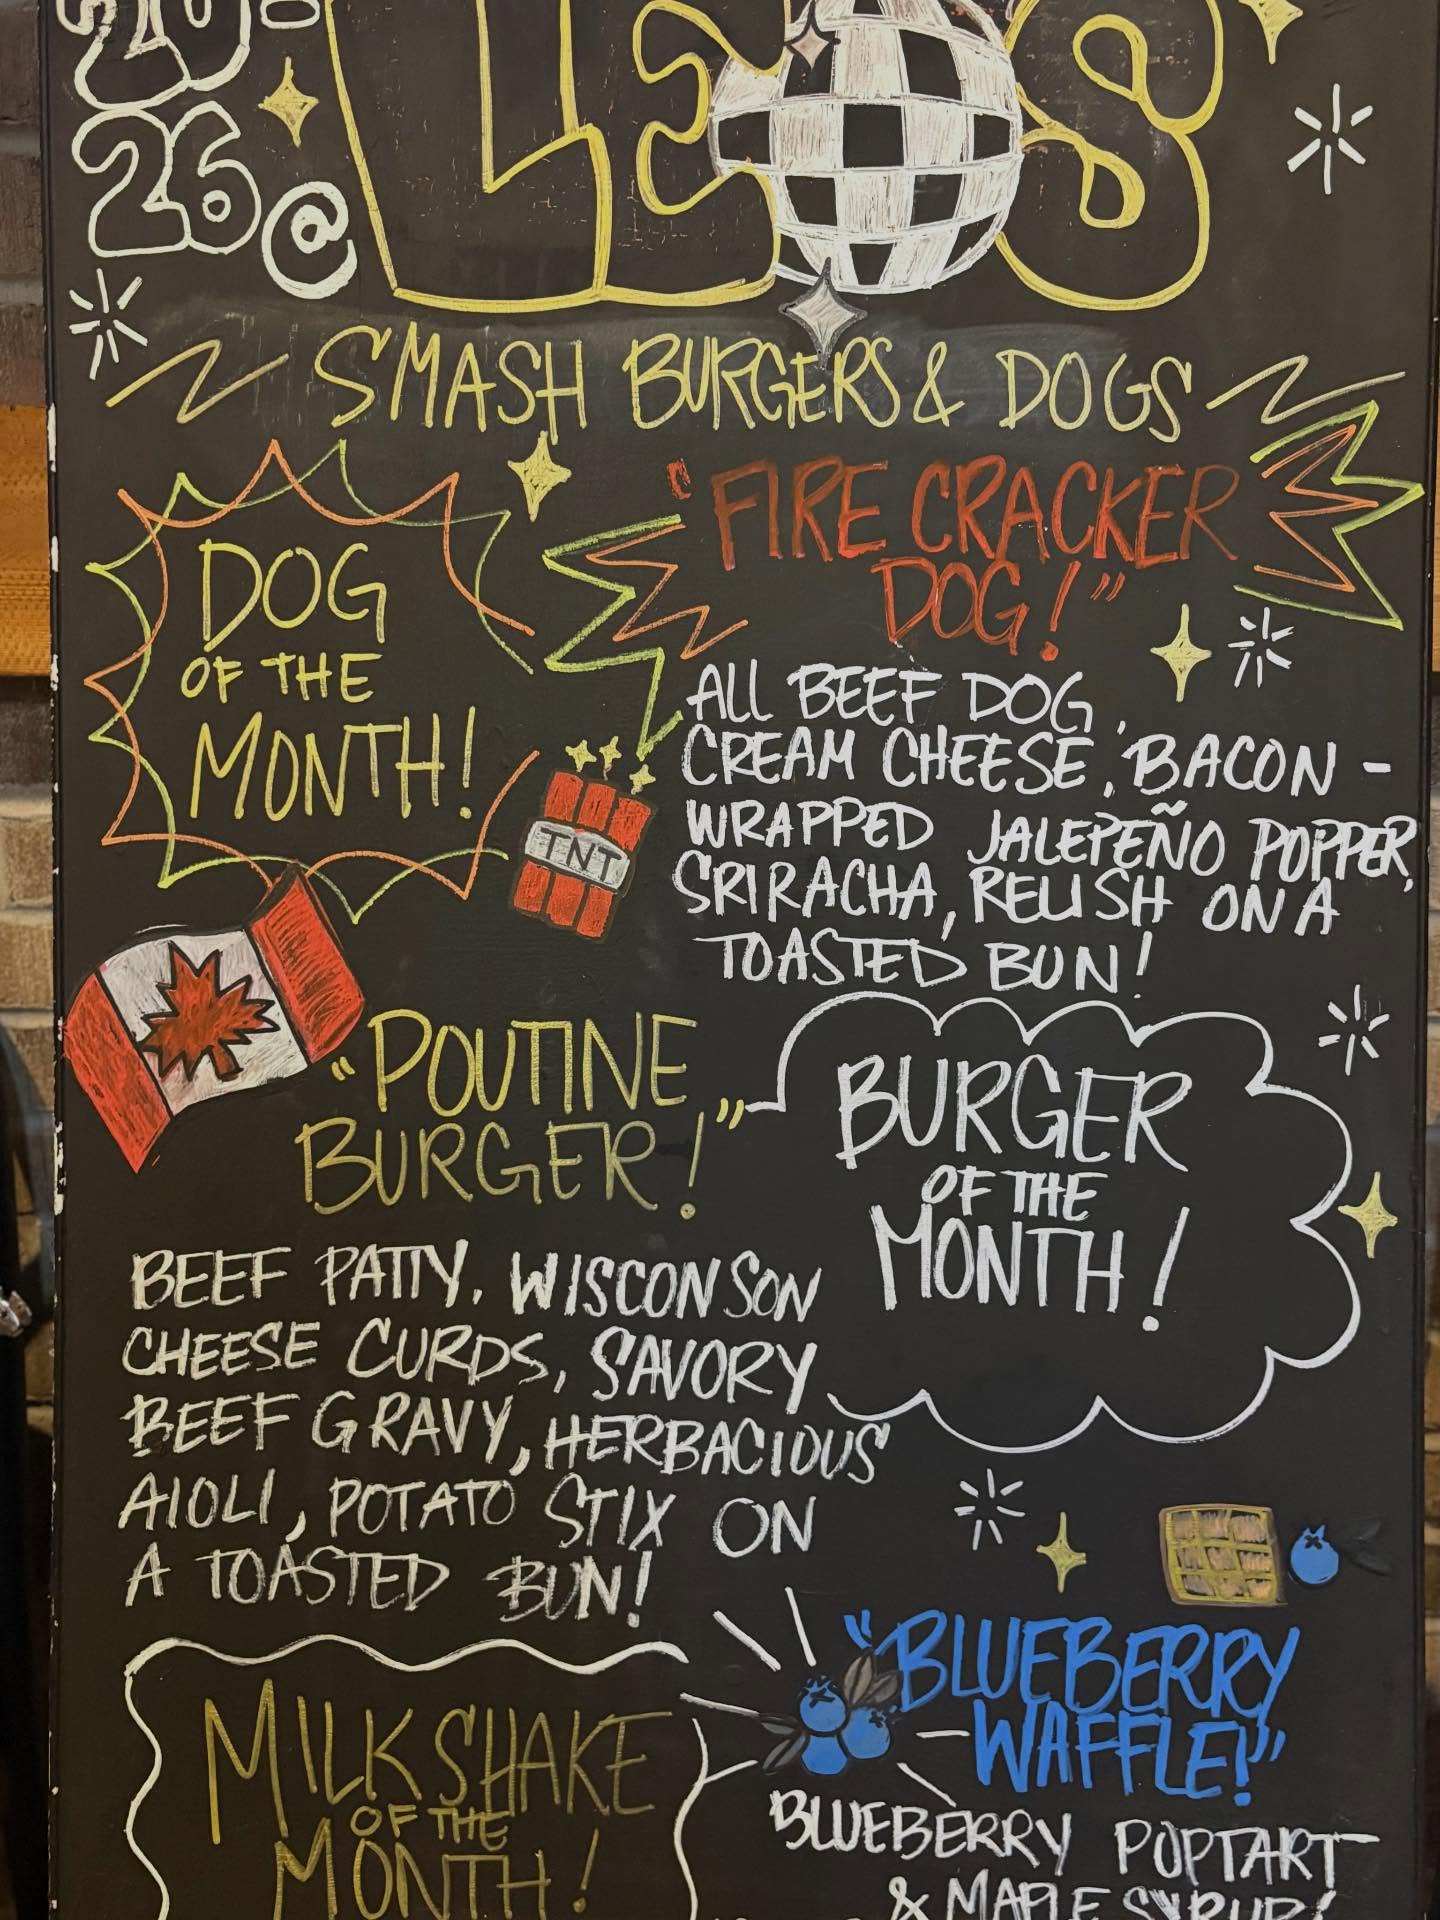 2026 @
LEO'S
SMASH BURGERS & DOGS
DOG
OF THE
MONTH!
TNT
"FIRE CRACKER
DOG!"
ALL BEEF DOG,
CREAM CHEESE, BACON -
WRAPPED JALEPEÑO POPPER,
SRIRACHA, RELISH ON A
TOASTED BUN!
"POUTINE
BURGER!"
BURGER
OF THE
MONTH!
BEEF PATTY, WISCONSON
CHEESE CURDS, SAVORY
BEEF GRAVY, HERBACIOUS
AIOLI, POTATO STIX ON
A TOASTED BUN!
MILKSHAKE
OF THE
MONTH!
"BLUEBERRY
WAFFLE!"
BLUEBERRY POPTART
& MAPLE SYRUP!